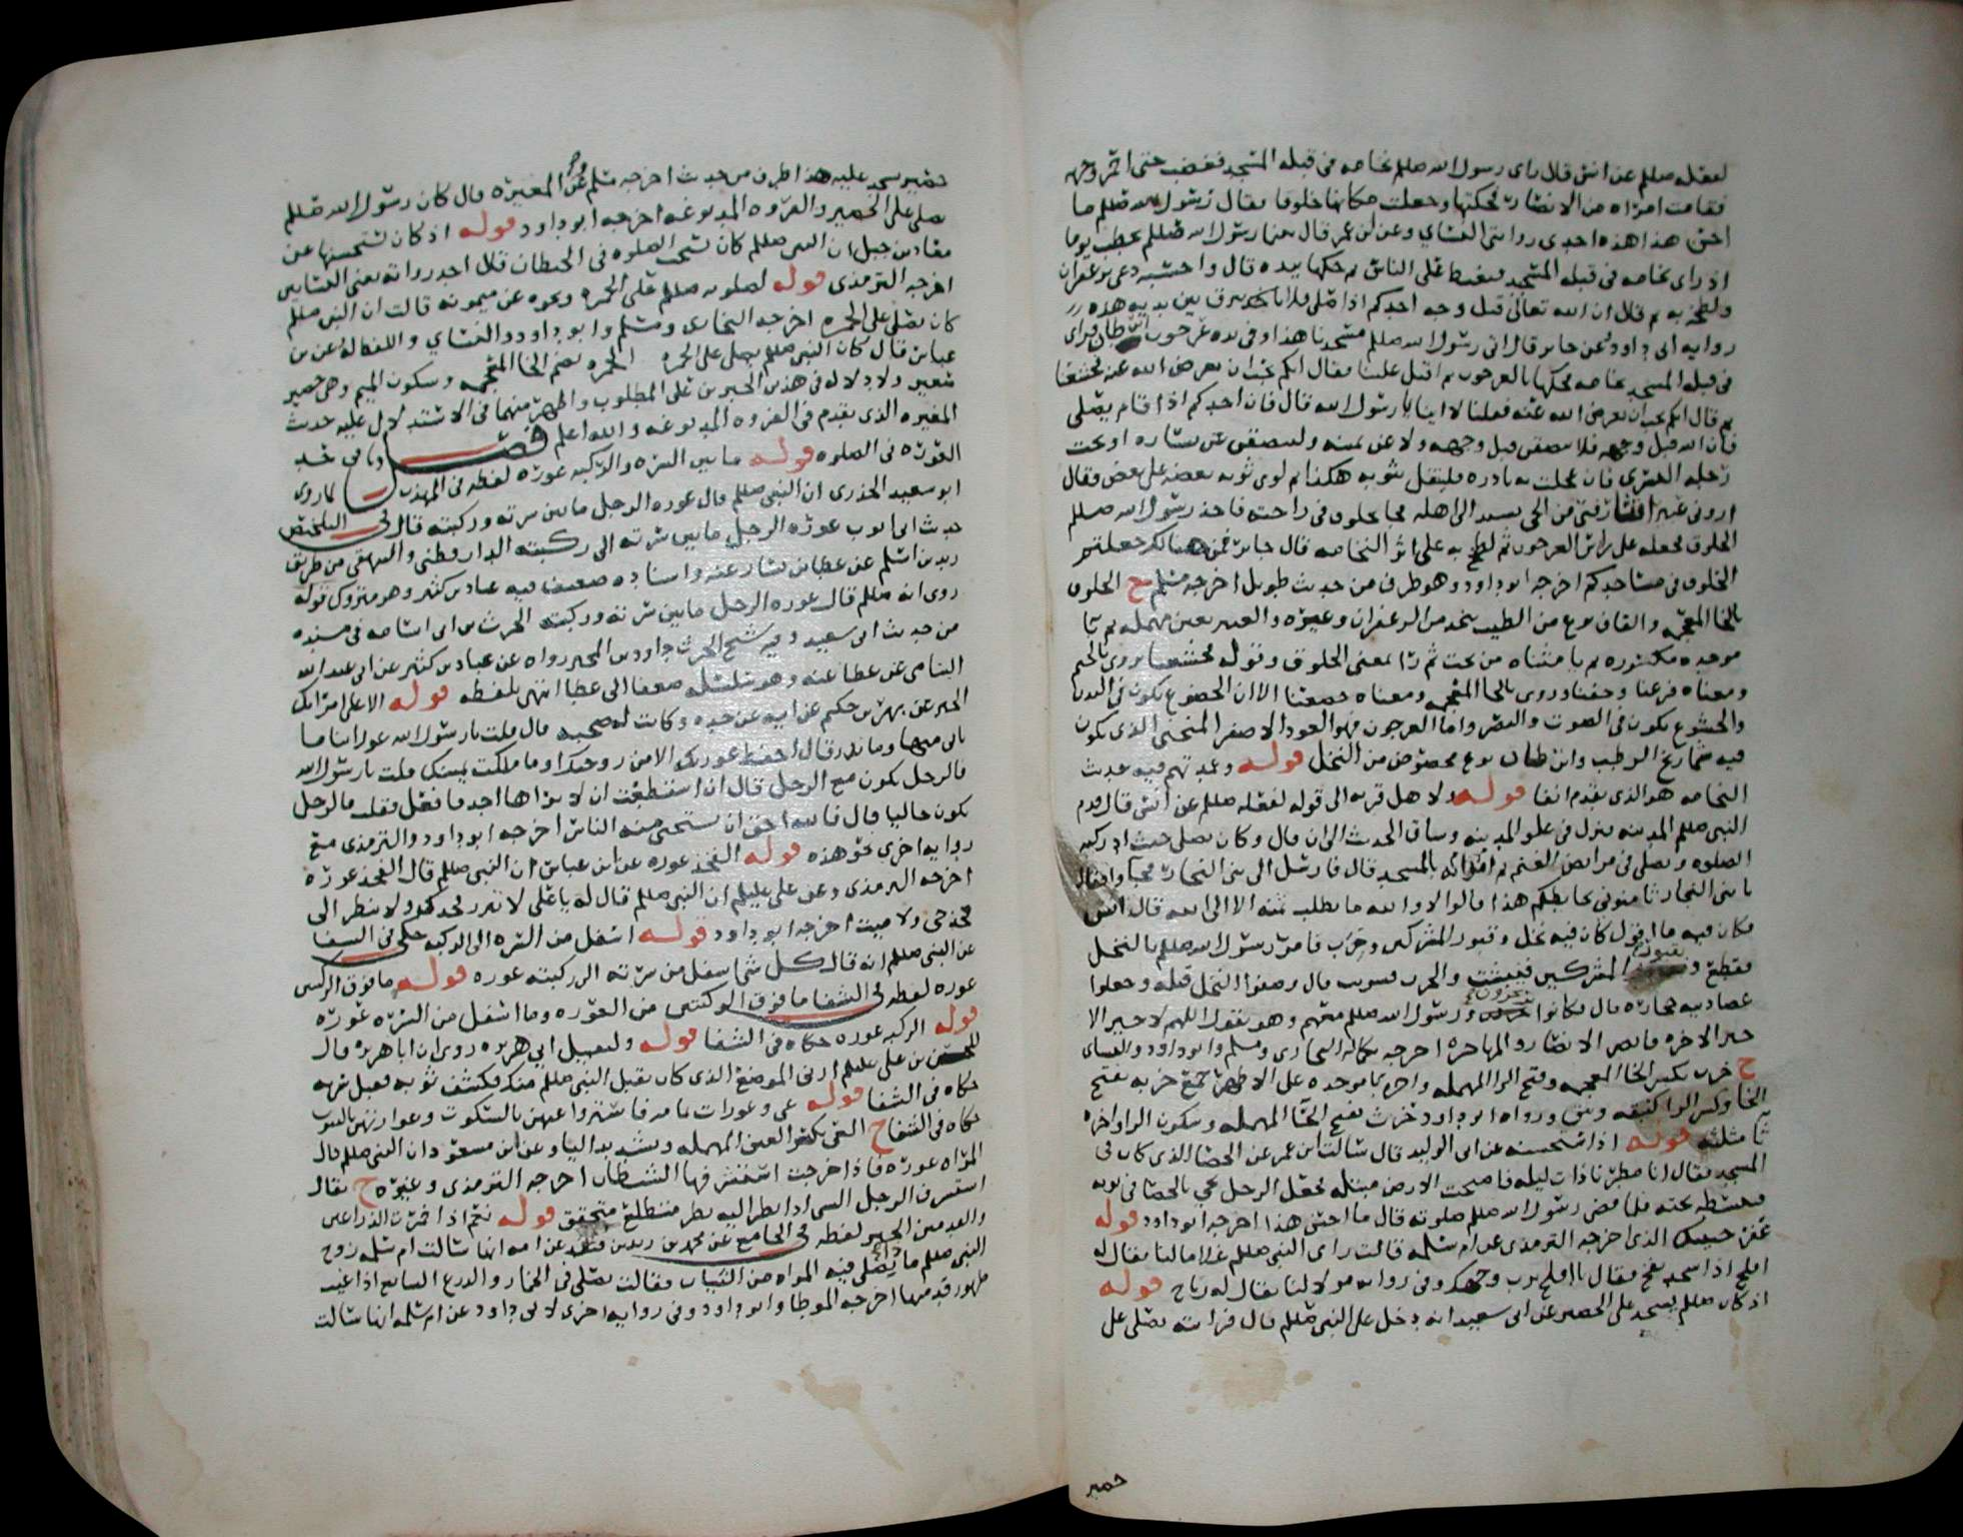 لفعله صللم عن انس قال راى رسول الله صللم نخامه في قبله المسجد فغضب حتى احمر وجهه
فقامت امراه من الانصار فحكتها وجعلت مكانها خلوقا فقال رسول الله صللم ما
احسن هذا هذه احدى روايتى النسائي وعن ابن عمر قال بينما رسول الله صللم يخطب يوما
اذ راى نخامه في قبله المسجد فتغيظ على الناس ثم حكها بيده قال واحسبه دعى بزعفران
ولطخه به ثم قال ان الله تعالى قبل وجه احدكم اذا صلى فلا يبزق بين يديه هذه
روايه ابى داود وعن جابر قال اتى رسول الله صللم مسجدنا هذا وفي يده عرجون ابن طاب فراى
في قبله المسجد نخامه فحكها بالعرجون ثم اقبل علينا فقال ايكم يحب ان يعرض الله عنه فخشعنا
ثم قال ايكم يحب ان يعرض الله عنه فقلنا لا اينا يا رسول الله قال فان احدكم اذا قام يصلى
فان الله قبل وجهه فلا يبصقن قبل وجهه ولا عن يمينه وليبصقن عن يساره او تحت
رجله اليسرى فان عجلت به بادره فليتفل بثوبه هكذا ثم لوى ثوبه بعضه على بعض فقال
ارونى عبيرا فثار فتى من الحى يشتد الى اهله فجا بخلوق في راحته فاخذ رسول الله صللم
الخلوق فجعله على راس العرجون ثم لطخ به على اثر النخامه قال جابر فمن هنالك جعلتم
الخلوق في مساجدكم اخرجه ابو داود وهو طرف من حديث طويل اخرجه مسلم ح الخلوق
بالخا المعجمه والقاف نوع من الطيب يتخذ من الزعفران وغيره والعبير بعين مهمله ثم با
موحده مكسوره ثم يا مثناه من تحت ثم را بمعنى الخلوق وقوله فخشعنا يروى بالجيم
ومعناه فزعنا وخفنا وروى بالخا المعجمه ومعناه خضعنا الا ان الخضوع يكون في البدن
والخشوع يكون في الصوت والبصر واما العرجون فهو العود الاصفر المنحنى الذى يكون
فيه شماريخ الرطب وابن طاب نوع مخصوص من النخل قوله وعمدتهم فيه حديث
النخامه هو الذى تقدم انفا قوله ولا هل قربه الى قوله لفعله صللم عن انس قال قدم
النبى صللم المدينه فنزل في علو المدينه وساق الحديث الى ان قال وكان يصلى حيث ادركته
الصلوه ويصلى في مرابض الغنم ثم انه امر بالمسجد قال فارسل الى بنى النجار فجاوا فقال
يا بنى النجار ثامنونى بحائطكم هذا قالوا لا والله ما نطلب ثمنه الا الى الله قال انس
فكان فيه ما اقول كان فيه نخل وقبور المشركين وخرب فامر رسول الله صللم بالنخل
فقطع و بقبور المشركين فنبشت والخرب فسويت قال وصفوا النخل قبله وجعلوا
عضادتيه حجاره قال فكانوا يرتجزون ورسول الله صللم معهم وهو يقول اللهم لا خير الا
خير الاخره فانصر الانصار والمهاجره اخرجه بكماله البخارى ومسلم وابو داود والنسائى
ح خرب بكسر الخا المعجمه وفتح الرا المهمله واخره با موحده على الاظهر جمع خربه بفتح
الخا وكسر الرا كنبقه ونبق ورواه ابو داود حرث بفتح الحا المهمله وسكون الرا واخره
ثا مثلثه قوله اذ استحسنه عن ابى الوليد قال سالت ابن عمر عن الحصا الذى كان في
المسجد فقال انا مطرنا ذات ليله فاصبحت الارض مبتله فجعل الرجل يجى بالحصا في ثوبه
فيبسطه تحته فلما قضى رسول الله صللم صلوته قال ما احسن هذا اخرجه ابو داود قوله
عفر جبينك الذى اخرجه الترمذى عن ام سلمه قالت راى النبى صللم غلاما لنا يقال له
افلح اذا سجد نفخ فقال يا افلح ترب وجهك وفي روايه مولا لنا يقال له رباح قوله
اذ كان صللم يسجد على الحصير عن ابى سعيد انه دخل على النبى صللم قال فرايته يصلى على
حصير
حصير يسجد عليه هذا طرف من حديث اخرجه مسلم وعن المغيره قال كان رسول الله صللم
يصلى على الحصير والفروه المدبوغه اخرجه ابو داود قوله اذ كان يستحسنها عن
معاذ بن جبل ان النبى صللم كان يستحب الصلوه في الحيطان قال احد رواته يعنى البساتين
اخرجه الترمذى قوله لصلوته صللم على الخمره ونحوه عن ميمونه قالت ان النبى صللم
كان يصلى على الخمره اخرجه البخارى ومسلم وابو داود والنسائي واللفظ له وعن ابن
عباس قال كان النبى صللم يصلى على الخمره الخمره بضم الخا المعجمه وسكون الميم وهى حصير
صغير ولا دلاله في هذين الخبرين على المطلوب واظهر منهما في الاستدلال عليه حديث
المغيره الذى تقدم في الفروه المدبوغه والله اعلم فصل وباب ستر
العوره في الصلوه قوله ما بين السره والركبه عوره لفظه في المهذب لما روى
ابو سعيد الخدرى ان النبى صللم قال عوره الرجل ما بين سرته وركبته قال في التلخيص
حديث ابى ايوب عوره الرجل ما بين سرته الى ركبته الدارقطنى والبيهقى من طريق
زيد بن اسلم عن عطا بن يسار عنه واسناده ضعيف فيه عباد بن كثير وهو متروك قوله
روى انه صللم قال عوره الرجل ما بين سرته وركبته الحرث بن ابى اسامه في مسنده
من حديث ابى سعيد وفيه شيخ الحرث داود بن المحبر رواه عن عباد بن كثير عن ابى عبد الله
الشامى عن عطا عنه وهو سلسله ضعفا الى عطا انتهى بلفظه قوله الا على امراتك
الخبر عن بهز بن حكيم عن ابيه عن جده وكانت له صحبه قال قلت يا رسول الله عوراتنا ما
ناتى منها وما نذر قال احفظ عورتك الا من زوجتك او ما ملكت يمينك قلت يا رسول الله
فالرجل يكون مع الرجل قال ان استطعت ان لا يراها احد فافعل فقلت فالرجل
يكون خاليا قال فالله احق ان يستحى منه الناس اخرجه ابو داود والترمذى مع
روايه اخرى نحو هذه قوله الفخذ عوره عن ابن عباس ان النبى صللم قال الفخذ عوره
اخرجه الترمذى وعن على عليلم ان النبى صللم قال له يا على لا تبرز فخدك ولا تنظر الى
فخذ حى ولا ميت اخرجه ابو داود قوله اسفل من السره الى الركبه حكى في الشفا
عن النبى صللم انه قال كل شى اسفل من سرته الى ركبته عوره قوله ما فوق الركبتين
عوره لفظه في الشفا ما فوق الركبتين من العوره وما اسفل من السره عوره
قوله الركبه عوره حكاه في الشفا قوله ولتقبيل ابي هريره روى ان ابا هريره قال
للحسن بن على عليلم ارنى الموضع الذى كان يقبل النبى صللم منك فكشف ثوبه فقبل سرته
حكاه في الشفا قوله عى وعورات تمامه فاستروا عيهن بالسكوت وعوراتهن بالبيوت
حكاه في الشفا ح العى بكسر العين المهمله وتشديد اليا وعن ابن مسعود ان النبى صللم قال
المراه عوره فاذا خرجت استشرفها الشيطان اخرجه الترمذى وغيره ح يقال
استشرف الرجل الشى اذا نظر اليه نظر متطلع متحقق قوله نعم اذا سترت الذراعين
والقدمين الخبر لفظه في الجامع عن محمد بن زيد بن قنفذ عن امه انها سالت ام سلمه زوج
النبى صللم ماذا تصلى فيه المراه من الثياب فقالت تصلى في الخمار والدرع السابغ اذا غيب
ظهور قدميها اخرجه الموطا وابو داود وفي روايه اخرى لابى داود عن ام سلمه انها سالت